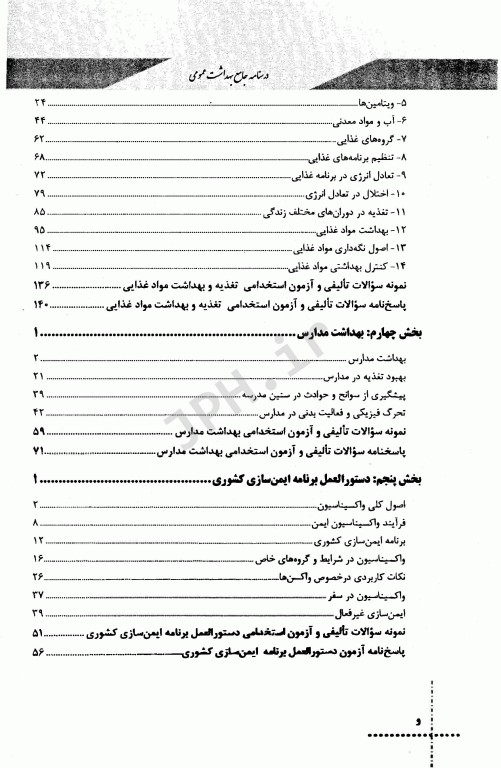 درسنامه جامع بهداشت عمومی
۵- ویتامین‌ها ۲۴
۶- آب و مواد معدنی ۴۴
۷- گروه‌های غذایی ۶۲
۸- تنظیم برنامه‌های غذایی ۶۸
۹- تعادل انرژی در برنامه غذایی ۷۲
۱۰- اختلال در تعادل انرژی ۷۹
۱۱- تغذیه در دوران‌های مختلف زندگی ۸۵
۱۲- بهداشت مواد غذایی ۹۵
۱۳- اصول نگه‌داری مواد غذایی ۱۱۴
۱۴- کنترل بهداشتی مواد غذایی ۱۱۹
نمونه سؤالات تألیفی و آزمون استخدامی تغذیه و بهداشت مواد غذایی ۱۳۶
پاسخ‌نامه سؤالات تألیفی و آزمون استخدامی تغذیه و بهداشت مواد غذایی ۱۴۰
بخش چهارم: بهداشت مدارس ۱
بهداشت مدارس ۲
بهبود تغذیه در مدارس ۲۱
پیشگیری از سوانح و حوادث در سنین مدرسه ۳۹
تحرک فیزیکی و فعالیت بدنی در مدارس ۴۲
نمونه سؤالات تألیفی و آزمون استخدامی بهداشت مدارس ۵۹
پاسخنامه سؤالات تألیفی و آزمون استخدامی بهداشت مدارس ۷۱
بخش پنجم: دستورالعمل برنامه ایمن‌سازی کشوری ۱
اصول کلی واکسیناسیون ۲
فرآیند واکسیناسیون ایمن ۸
برنامه ایمن‌سازی کشوری ۱۲
واکسیناسیون در شرایط و گروه‌های خاص ۱۶
نکات کاربردی درخصوص واکسن‌ها ۲۶
واکسیناسیون در سفر ۳۷
ایمن‌سازی غیرفعال ۳۹
نمونه سؤالات تألیفی و آزمون استخدامی دستورالعمل برنامه ایمن‌سازی کشوری ۵۱
پاسخ‌نامه آزمون دستورالعمل برنامه ایمن‌سازی کشوری ۵۶
JPH.ir
و